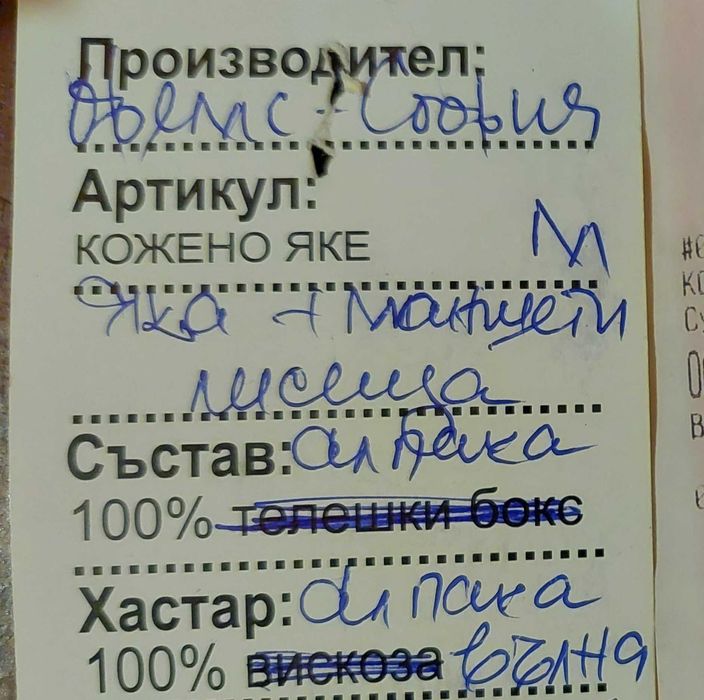 Производител:
София
Артикул:
КОЖЕНО ЯКЕ М
Яка + маншети
лисица
Състав: алпака
100% телешки бокс
Хастар: алпака
100% вискоза вълна